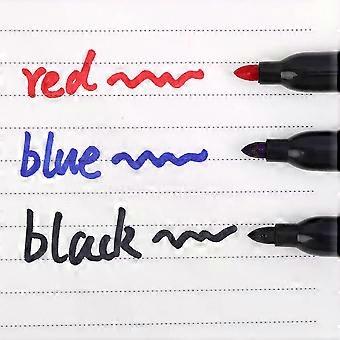 red
blue
black